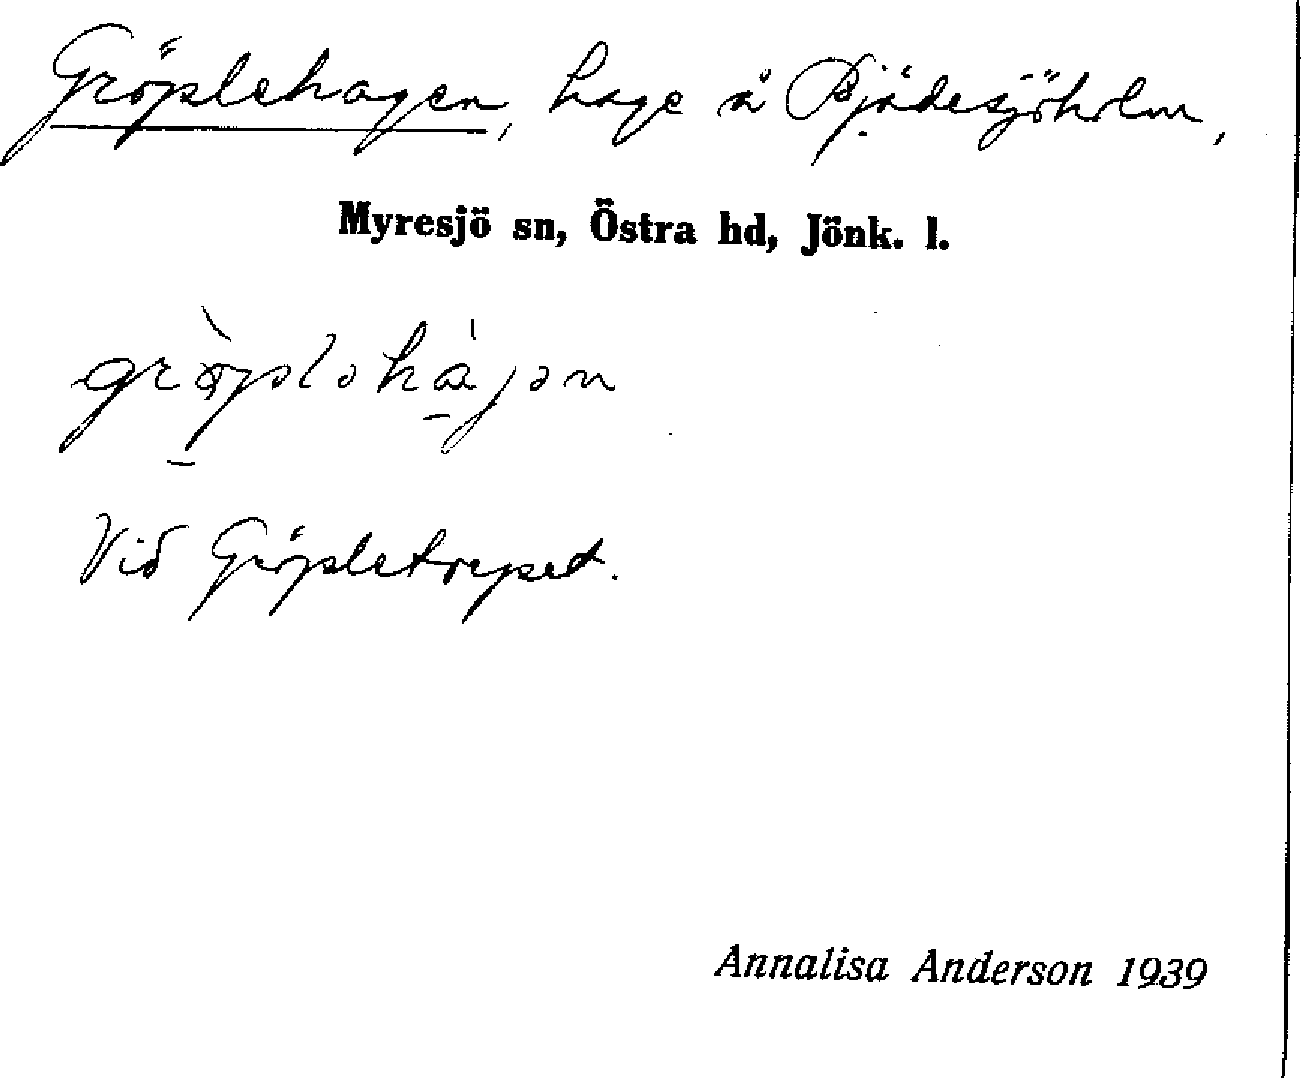 Gröplehagen, hage å Bjädesjöholm,
Myresjö sn, Östra hd, Jönk. l.
Vid Gröpletorpet.
Annalisa Anderson 1939